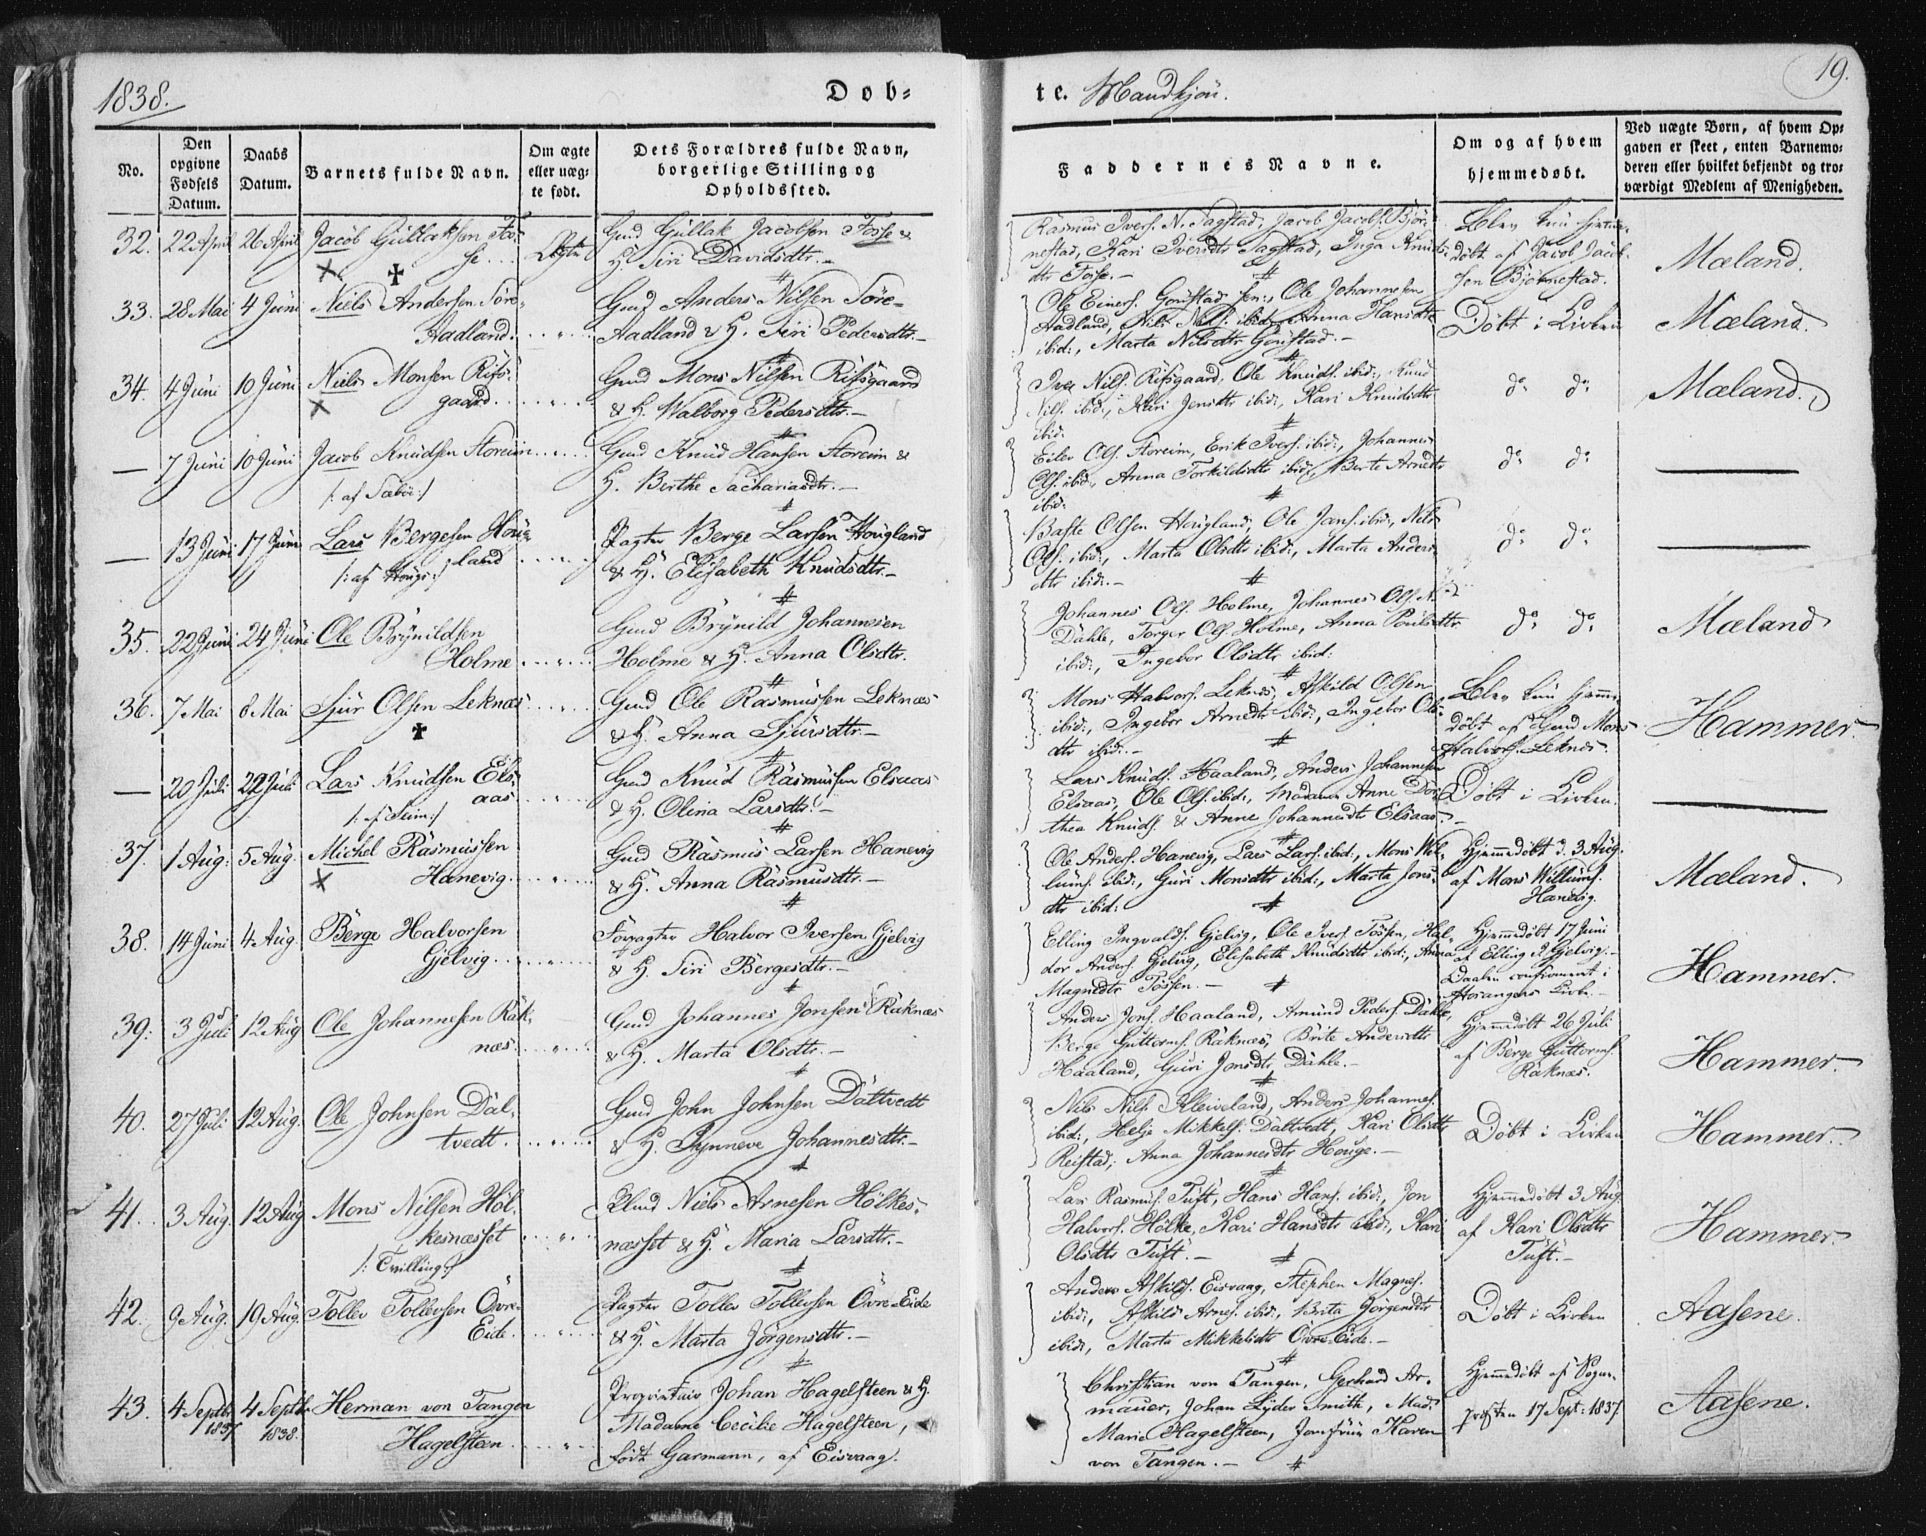 1838.
Døb=
te. Mandkjøn.
19.
No.
Den
opgivne
Fødsels
Datum.
Daabs
Datum.
Barnets fulde Navn.
Om ægte
eller uæg=
te født.
Dets Forældres fulde Navn,
borgerlige Stilling og
Opholdssted.
Faddernes Navne.
Om og af hvem
hjemmedøbt.
Ved uægte Børn, af hvem Op=
gaven er skeet, enten Barnemo=
deren eller hvilket bekjendt og tro=
værdigt Medlem af Menigheden.
32. 22 April 26 April Jacob Gullaksen Fos=
se
Ægte
Gmd Gullak Jacobsen Fosse &
H. Siri Davidsdtr.
Rasmus Ivers. N. Tagstad, Jacob Jacobs. Bjør=
nestad, Kari Iversdtr Tagstad, Inga Knuds=
dtr Fosse.
Blev kun hjemme=
døbt af Jacob Jacob=
sen Bjørnestad.
Mæland.
33. 28 Mai 4 Juni Niels Andersen Søre=
Aadland.
Gmd Anders Nilsen Søre=
Aadland & H. Siri Pedersdtr.
Ole Einers. Gorustad sen:, Ole Johannesen
Aadland, Nils Nils. ibid:, Anna Hansdtr
ibid:, Marta Nilsdtr Gorustad.
Døbt i Kirken
Mæland.
34. 4 Juni 10 Juni Niels Monsen Riss=
gaard.
Gmd Mons Nilsen Rissgaard
& H. Walborg Pedersdtr.
Iver Nils. Rissgaard, Ole Knuds. ibid:, Knud
Nils. ibid:, Kari Jensdtr ibid:, Kari Knudsdtr
ibid:
do do
Mæland.
— 7 Juni 10 Juni Jacob Knudsen Storeim
/: af Sæbøe :/
Gmd Knud Hansen Storeim &
H. Berthe Sachariasdtr.
Eilev Ols. Storeim, Erik Ivers. ibid:, Johannes
Ols. ibid:, Anna Torkildsdtr ibid:, Berte Arnedtr
ibid:
do do
— 13 Juni 17 Juni Lars Bergesen Houg=
land
/: af Hougs :/
Pagter Berge Larsen Hougland
& H. Elisabeth Knudsdtr.
Baste Olsen Hougland, Ole Jans. ibid:, Nils
Ols. ibid:, Marta Olsdtr ibid:, Marta Anders
dtr ibid:
do do
35. 22 Juni 24 Juni Ole Brynildsen
Holme
Gmd Brynild Johannesen
Holme & H. Anna Olsdtr.
Johannes Ols. Holme, Johannes Ols. N.
Dahle, Torger Ols. Holme, Anna Poulsdtr
ibid:, Ingebor Olsdtr ibid:
do do
Mæland
36. 7 Mai 8 Mai Sjur Olsen Leknæs
Gmd Ole Rasmussen Leknæs
& H. Anna Sjursdtr.
Mons Halvors. Leknæs, Askild Olsen
ibid:, Ingebor Arnedtr ibid:, Ingebor Ols=
dtr ibid:
Blev kun hjemme
døbt af Gmd Mons
Halvors. Leknæs.
Hammer.
— 20 Juli 22 Juli Lars Knudsen Els=
aas
/: af Seim :/
Gmd Knud Rasmussen Elsaas
& H. Olena Larsdtr.
Lars Knuds. Haaland, Anders Johannesen
Elsaas, Ole Ols. ibid:, Madame Anne Dor=
thea Knuds. & Anne Johannesdtr Elsaas.
Døbt i Kirken.
37. 1 Aug: 5 Aug. Michel Rasmussen
Hanevig.
Gmd Rasmus Larsen Hanevig
& H. Anna Rasmusdtr.
Ole Anders. Hanevig, Lars Lars. ibid:, Mons Wil=
lums. ibid:, Guri Monsdtr ibid:, Marta Jons=
dtr ibid:
Hjemmedøbt d. 3 Aug.
af Mons Willums.
Hanevig.
Mæland.
38. 14 Juni 4 Aug. Berge Halvorsen
Gjelvig.
Forpagter Halvor Iversen Gjelvig
& H. Siri Bergesdtr.
Elling Ingvalds. Gjelvig, Ole Ivers. Fossen, Hal=
dor Anders. Gjelvig, Elisabeth Knudsdtr ibid:, Anna
Magnedtr Fossen.
Hjemmedøbt 17 Juni
af Elling I. Gjelvig.
Daaben confirmeret i
Hosangers Kirke.
Hammer.
39. 3 Juli 12 Aug Ole Johannesen Räk=
næs.
Gmd Johannes Jonsen Räknæs
& H. Marta Olsdtr.
Anders Jons. Haaland, Amund Peders. Dahle,
Berge Guttorms. Räknæs, Brite Andersdtr
Haaland, Guri Jonsdtr Dahle.
Hjemmedøbt 26 Juli
af Berge Guttorms.
Räknæs.
Hammer.
40. 27 Juli 12 Aug. Ole Johnsen Däl=
tvedt.
Gmd John Johnsen Dältvedt
& H. Synneve Johannesdtr.
Nils Nils. Kleiveland, Anders Johannes.
ibid:, Helje Mikkels. Dältvedt, Kari Olsdtr
Reistad, Anna Johannesdtr Houge.
Døbt i Kirken
Hammer.
41. 3 Aug. 12 Aug Mons Nilsen Höl=
kesnæsset
/: Tvilling :/
Niels Arnesen Hölkes=
næsset & H. Maria Larsdtr.
Lars Rasmus. Tuft, Hans Hans. ibid:, Jon
Halvors. Hölke, Kari Hansdtr ibid:, Kari
Olsdtr Tuft.
Hjemmedøbt 3 Aug
af Kari Olsdtr
Tuft.
Hammer.
42. 9 Aug. 19 Aug. Tollev Tollevsen Övre=
Eide.
Pagter Tollev Tollevsen Övre=Eide
& H. Marta Jörgensdtr.
Anders Askilds. Eisvaag, Stephen Magnes.
ibid:, Askild Arnes. ibid:, Brita Jörgensdtr
ibid:, Marta Mikkelsdtr Övre=Eide.
Døbt i Kirken
Aasene.
43. 4 Septbr 1837. 4 Septbr 1838. Herman von Tangen
Hagelsteen.
Proprietair Johan Hagelsteen & H.
Madame Cecilie Hagelsteen,
født Garmann, af Eisvaag.
Christian von Tangen, Gerhard Ar=
mauer, Johan Lyder Smith, Mad.
Marie Hagelsteen, Jomfrue Karen
von Tangen.
Hjemmedøbt af Sogne=
præsten 17 Sept: 1837.
Aasene.